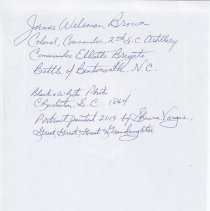 James Welsman Brown
Colonel, Commander 2nd S.C. Artillery
Commander Elliotts Brigade
Battle of Bentonville, N.C.
Black & White Photo
Charleston, S.C. 1864
Portrait painted 2019 by
Great Great Great Granddaughter